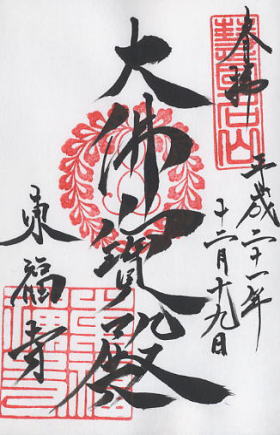 奉拝
平成二十一年
十二月十九日
大佛寳殿
東福寺
慧日山